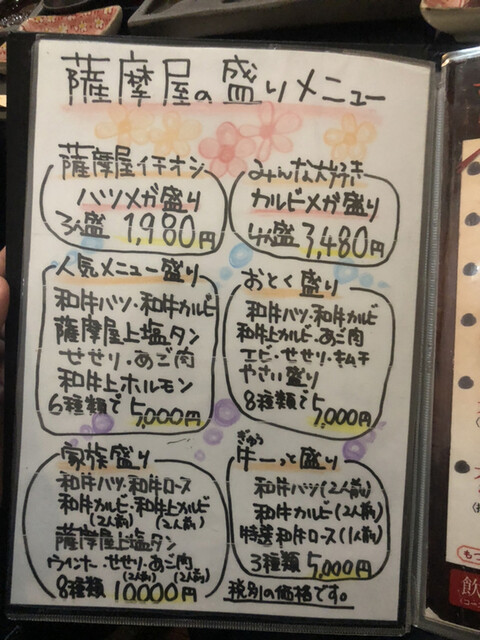 薩摩屋の盛りメニュー
薩摩屋イチオシ
ハツメガ盛り
3人盛 1,980円
みんな大好き
カルビメガ盛り
4人盛 3,480円
人気メニュー盛り
和牛ハツ・和牛カルビ
薩摩屋上塩タン
せせり・あご肉
和牛上ホルモン
6種類で 5,000円
おとく盛り
和牛ハツ・和牛カルビ
和牛上カルビ・あご肉
エビ・せせり・キムチ
やさい盛り
8種類で 7,000円
家族盛り
和牛ハツ・和牛ロース
和牛カルビ・和牛上カルビ
(2人前) (2人前)
薩摩屋上塩タン
ウインナー せせり・あご肉
(2人前) (2人前)
8種類 10000円
ぎゅう
牛ーっと盛り
和牛ハツ(2人前)
和牛カルビ(2人前)
特選和牛ロース(1人前)
3種類 5,000円
税別の価格です。
もつ
飲